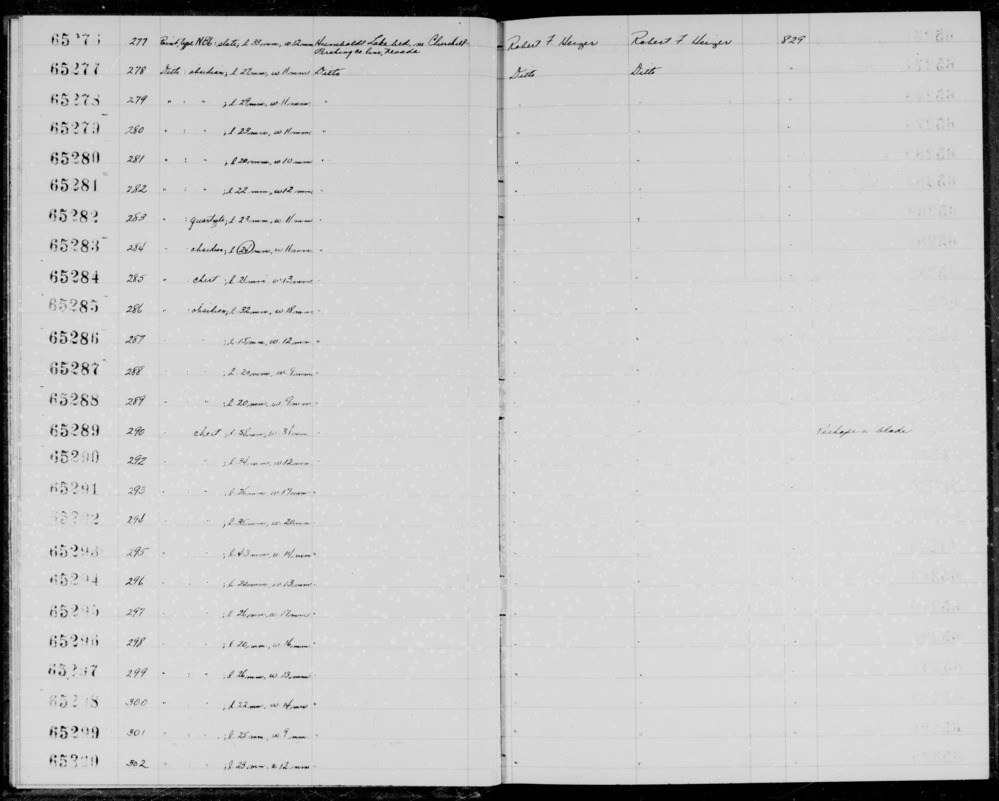 65276 277 Point, type NBb: slate; l 33mm, w 12mm Humboldt Lake bed, nr Churchill- Robert F Heizer Robert F Heizer 829
Pershing Co line, Nevada
65277 278 Ditto : obsidian; l 22mm, w 11mm Ditto Ditto Ditto "
65278 279 " : " ; l 29mm, w 11mm " " "
65279 280 " : " ; l 23mm, w 11mm " " "
65280 281 " : " ; l 20mm, w 10mm " " "
65281 282 " : " ; l 22mm, w 12mm " " "
65282 283 " : quartzite; l 23mm, w 11mm " " "
65283 284 " obsidian; l 24mm, w 11mm " " "
65284 285 " chert ; l 21mm, w 13mm " " "
65285 286 " obsidian; l 32mm, w 18mm " " "
65286 287 " " ; l 15mm, w 12mm " " "
65287 288 " " ; l 20mm, w 9mm " " "
65288 289 " " ; l 20mm, w 9mm " " "
65289 290 " chert ; l 38mm, w 31mm " " " Perhaps a blade
65290 292 " " ; l 34mm, w 12mm " " "
65291 293 " " ; l 26mm, w 17mm " " "
65292 294 " " ; l 35mm, w 20mm " " "
65293 295 " " ; l 43mm, w 14mm " " "
65294 296 " " ; l 20mm, w 13mm " " "
65295 297 " " ; l 26mm, w 17mm " " "
65296 298 " " ; l 20mm, w 16mm " " "
65297 299 " : " ; l 26mm, w 13mm " " "
65298 300 " " ; l 22mm, w 14mm " " "
65299 301 " " ; l 25mm, w 9mm " " "
302 " " ; l 23mm, w 12mm " " "